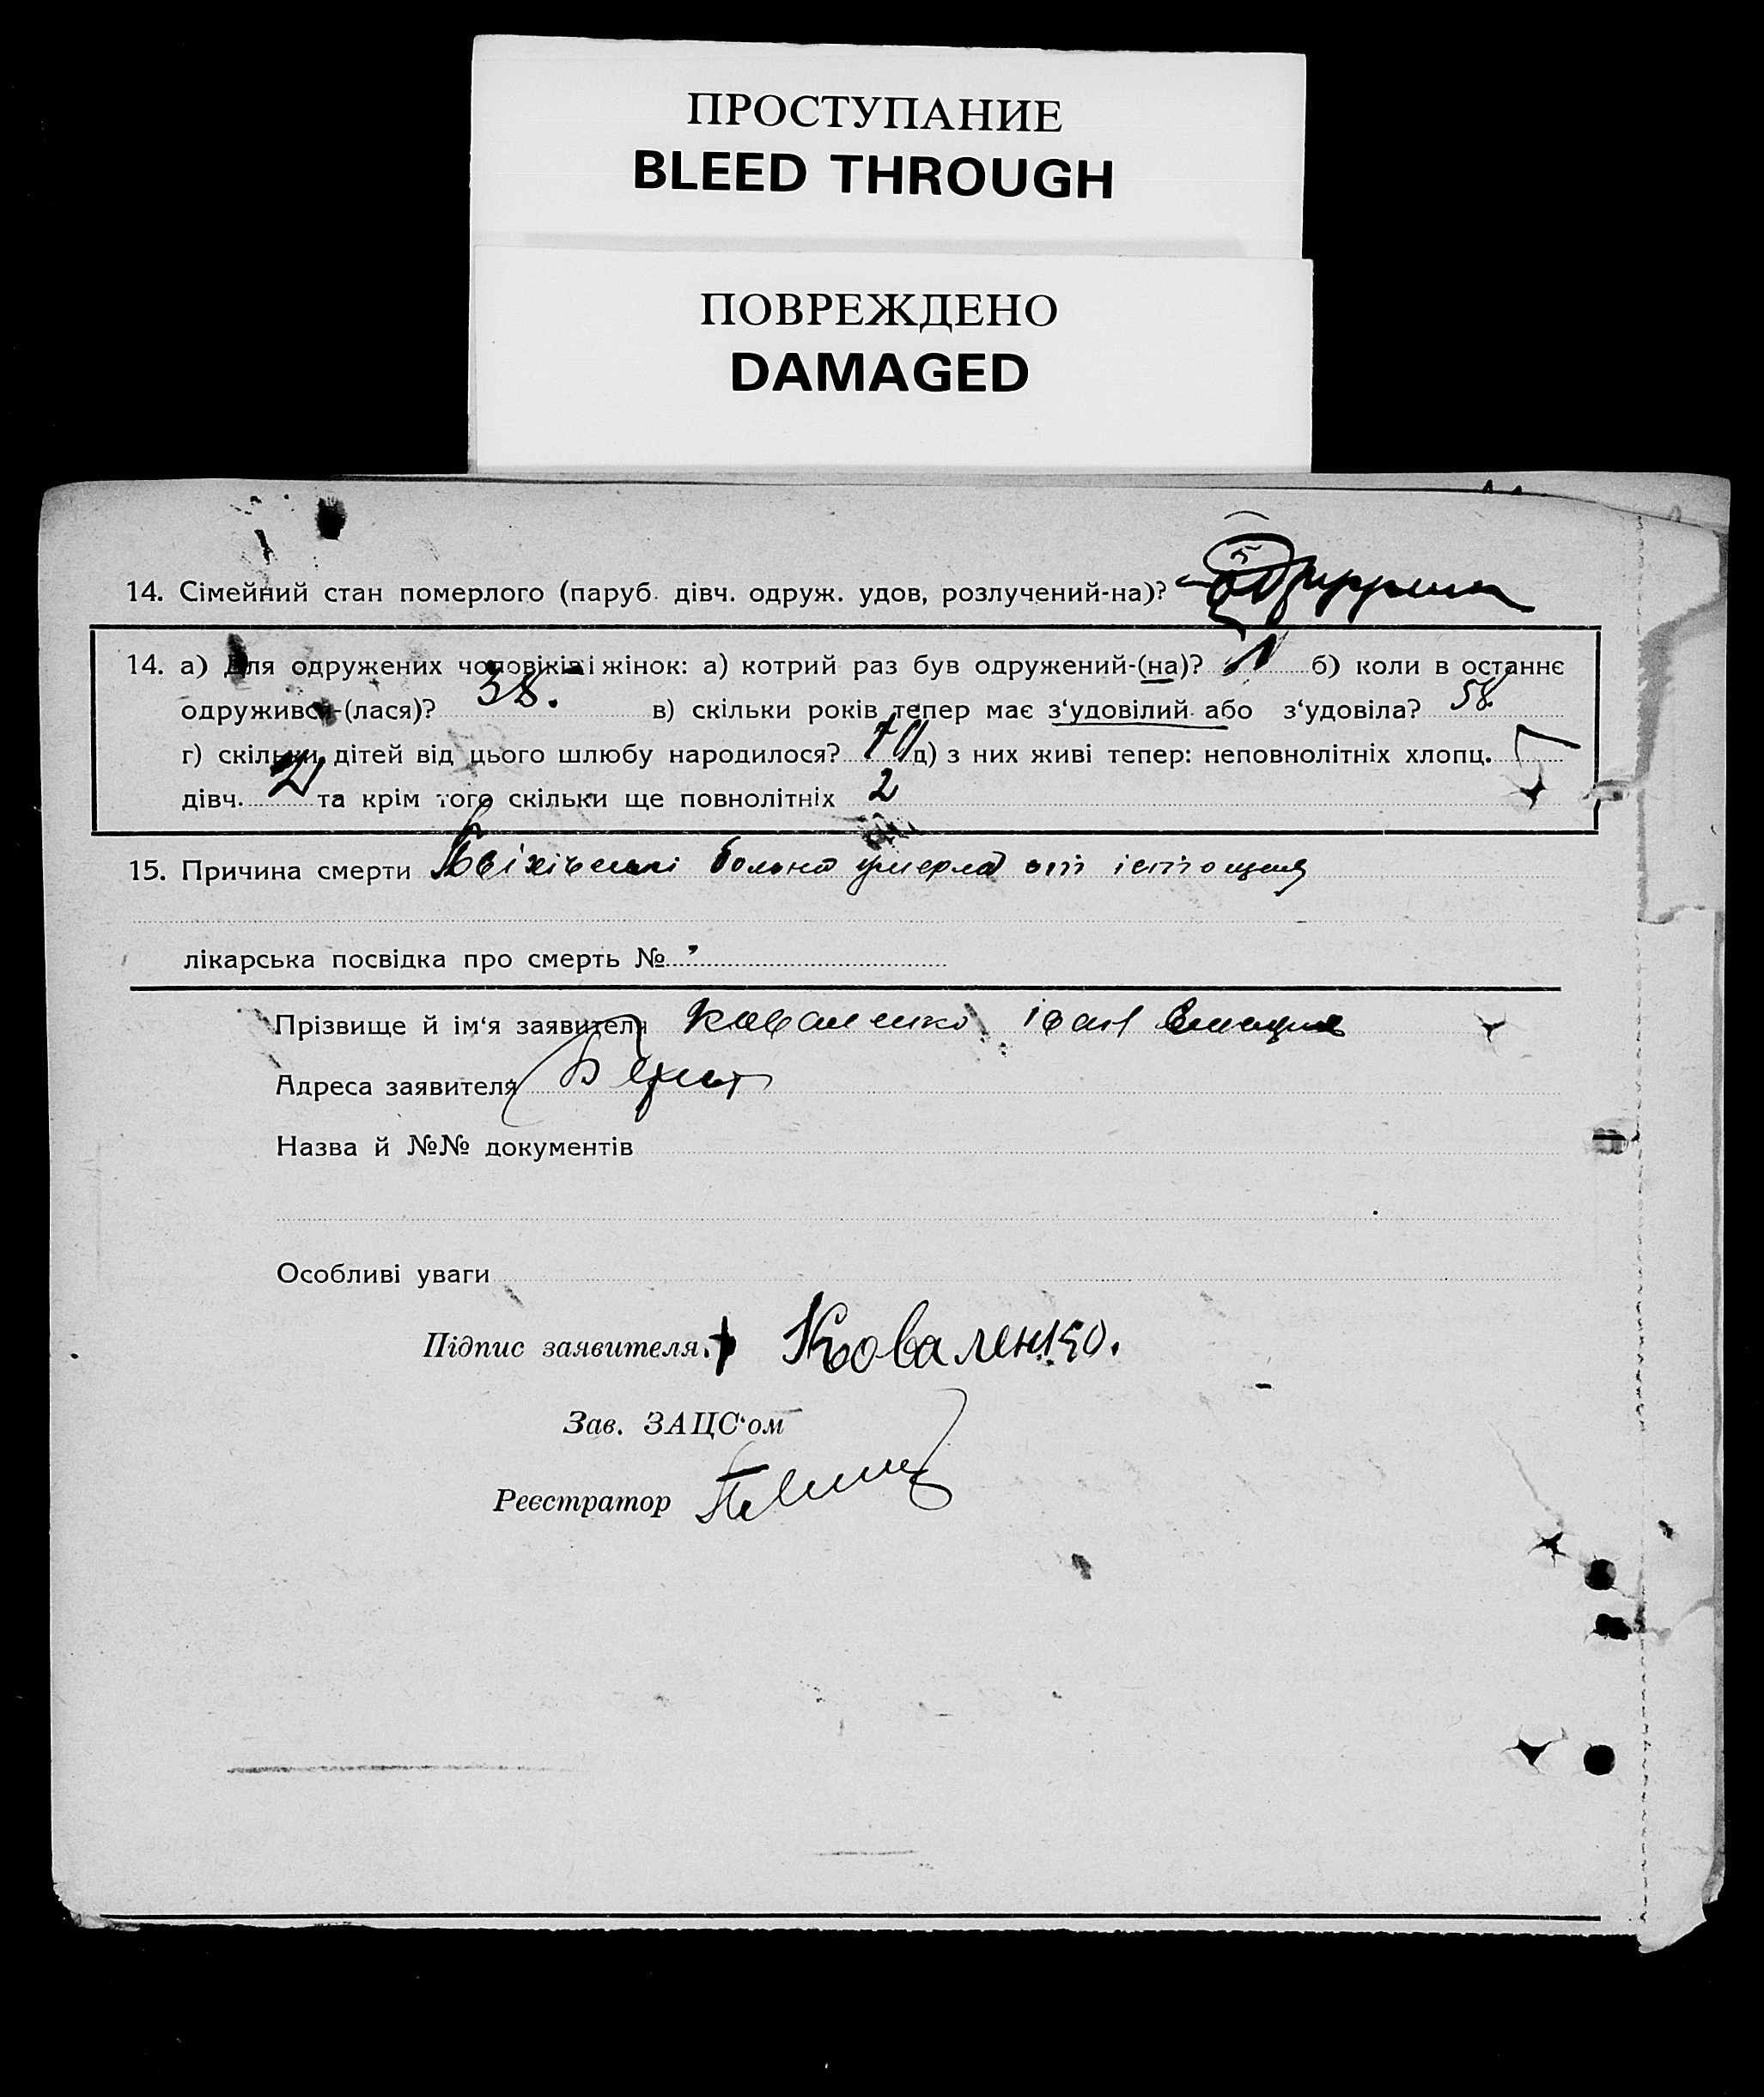 ПРОСТУПАНИЕ
BLEED THROUGH
ПОВРЕЖДЕНО
DAMAGED
14. Сімейний стан померлого (паруб. дівч. одруж. удов, розлучений-на)?
14. а) Для одружених чоловіків і жінок: а) котрий раз був одружений-(на)? 1 б) коли в останнє
одружився-(лася)? 38. в) скільки років тепер має з‘удовілий або з‘удовіла? 58
г) скільки дітей від цього шлюбу народилося? д) з них живі тепер: неповнолітніх хлопц.
дівч. 2 та крім того скільки ще повнолітніх 2
15. Причина смерти больна умерла от
лікарська посвідка про смерть №
Прізвище й ім‘я заявителя Коваленко іван
Адреса заявителя
Назва й №№ документів
Особливі уваги
Підпис заявителя. Коваленко.
Зав. ЗАЦС‘ом
Реєстратор